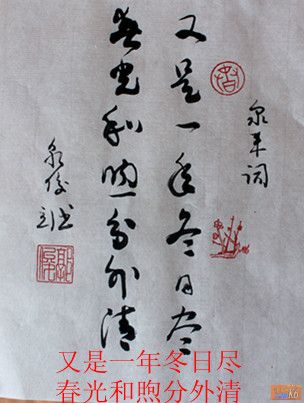 又是一年冬日尽
春光和煦分外清
又是一年冬日尽
春光和煦分外清